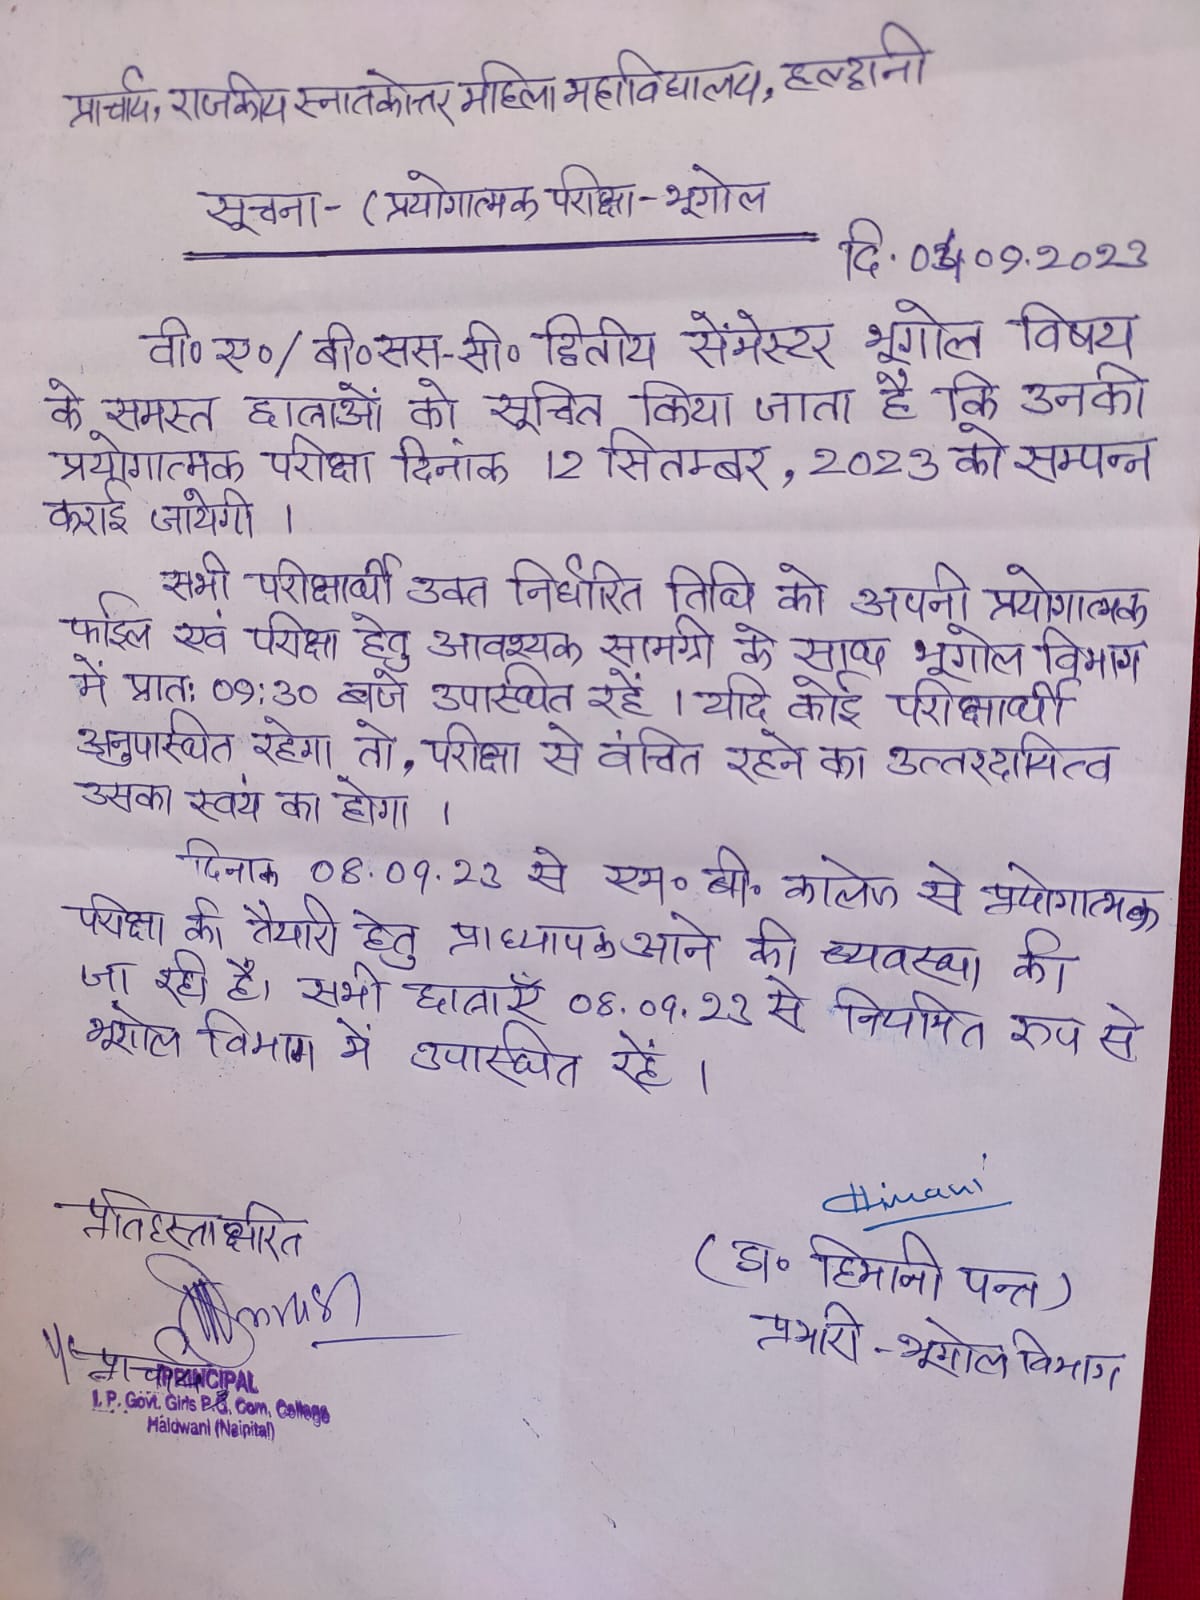 प्राचार्य, राजकीय स्नातकोत्तर महिला महाविद्यालय, हल्द्वानी
सूचना - (प्रयोगात्मक परीक्षा - भूगोल
दि. 04.09.2023
बी० ए० / बी० एस-सी० द्वितीय सेंमेस्टर भूगोल विषय
के समस्त छात्राओं को सूचित किया जाता है कि उनकी
प्रयोगात्मक परीक्षा दिनांक 12 सितम्बर, 2023 को सम्पन्न
कराई जायेगी ।
सभी परीक्षार्थी उक्त निर्धारित तिथि को अपनी प्रयोगात्मक
फाईल एवं परीक्षा हेतु आवश्यक सामग्री के साथ भूगोल विभाग
में प्रातः 09:30 बजे उपस्थित रहें । यदि कोई परीक्षार्थी
अनुपस्थित रहेगा तो, परीक्षा से वंचित रहने का उत्तरदायित्व
उसका स्वयं का होगा ।
दिनांक 08.09.23 से एम० बी० कालेज से प्रयोगात्मक
परीक्षा की तैयारी हेतु प्राध्यापक आने की व्यवस्था की
जा रही है। सभी छात्राएँ 08.09.23 से नियमित रूप से
भूगोल विभाग में उपस्थित रहें ।
Himani
प्रतिहस्ताक्षरित
(डा० हिमानी पन्त)
प्रभारी - भूगोल विभाग
प्राचार्य
PRINCIPAL
I. P. Govt. Girls P.G. Com. College
Haldwani (Nainital)